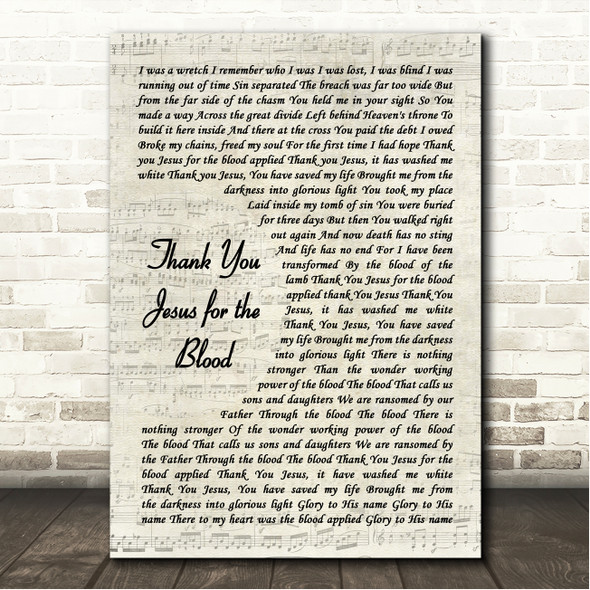 I was a wretch I remember who I was I was lost, I was blind I was
running out of time Sin separated The breach was far too wide But
from the far side of the chasm You held me in your sight So You
made a way Across the great divide Left behind Heaven's throne To
build it here inside And there at the cross You paid the debt I owed
Broke my chains, freed my soul For the first time I had hope Thank
you Jesus for the blood applied Thank you Jesus, it has washed me
white Thank you Jesus, You have saved my life Brought me from the
darkness into glorious light You took my place
Laid inside my tomb of sin You were buried
for three days But then You walked right
out again And now death has no sting
And life has no end For I have been
transformed By the blood of the
lamb Thank You Jesus for the blood
applied thank You Jesus Thank You
Jesus, it has washed me white
Thank You Jesus, You have saved
my life Brought me from the darkness
into glorious light There is nothing
stronger Than the wonder working
power of the blood The blood That calls us
sons and daughters We are ransomed by our
Father Through the blood The blood There is
nothing stronger Of the wonder working power of the blood
The blood That calls us sons and daughters We are ransomed by
the Father Through the blood The blood Thank You Jesus for the
blood applied Thank You Jesus, it have washed me white
Thank You Jesus, You have saved my life Brought me from
the darkness into glorious light Glory to His name Glory to His
name There to my heart was the blood applied Glory to His name
Thank You
Jesus for the
Blood